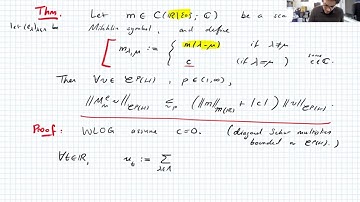 Thm. Let m ∈ C(ℝ\{0}; ℂ) be a
let (e_λ)_{λ∈Λ} Mihlin symbol, and define
m_{λ,μ} := { m(λ-μ) if λ≠μ
c if (λ=μ) some c∈ℂ.
Then ∀ u ∈ ℓP(Λ), p ∈ (1,∞),
≲_p ( ‖m‖ + |c| )
Proof: WLOG assume c=0. (diagonal Schur multipliers
bounded on
∀t∈ℝ, u_t := Σ_{λ∈Λ}